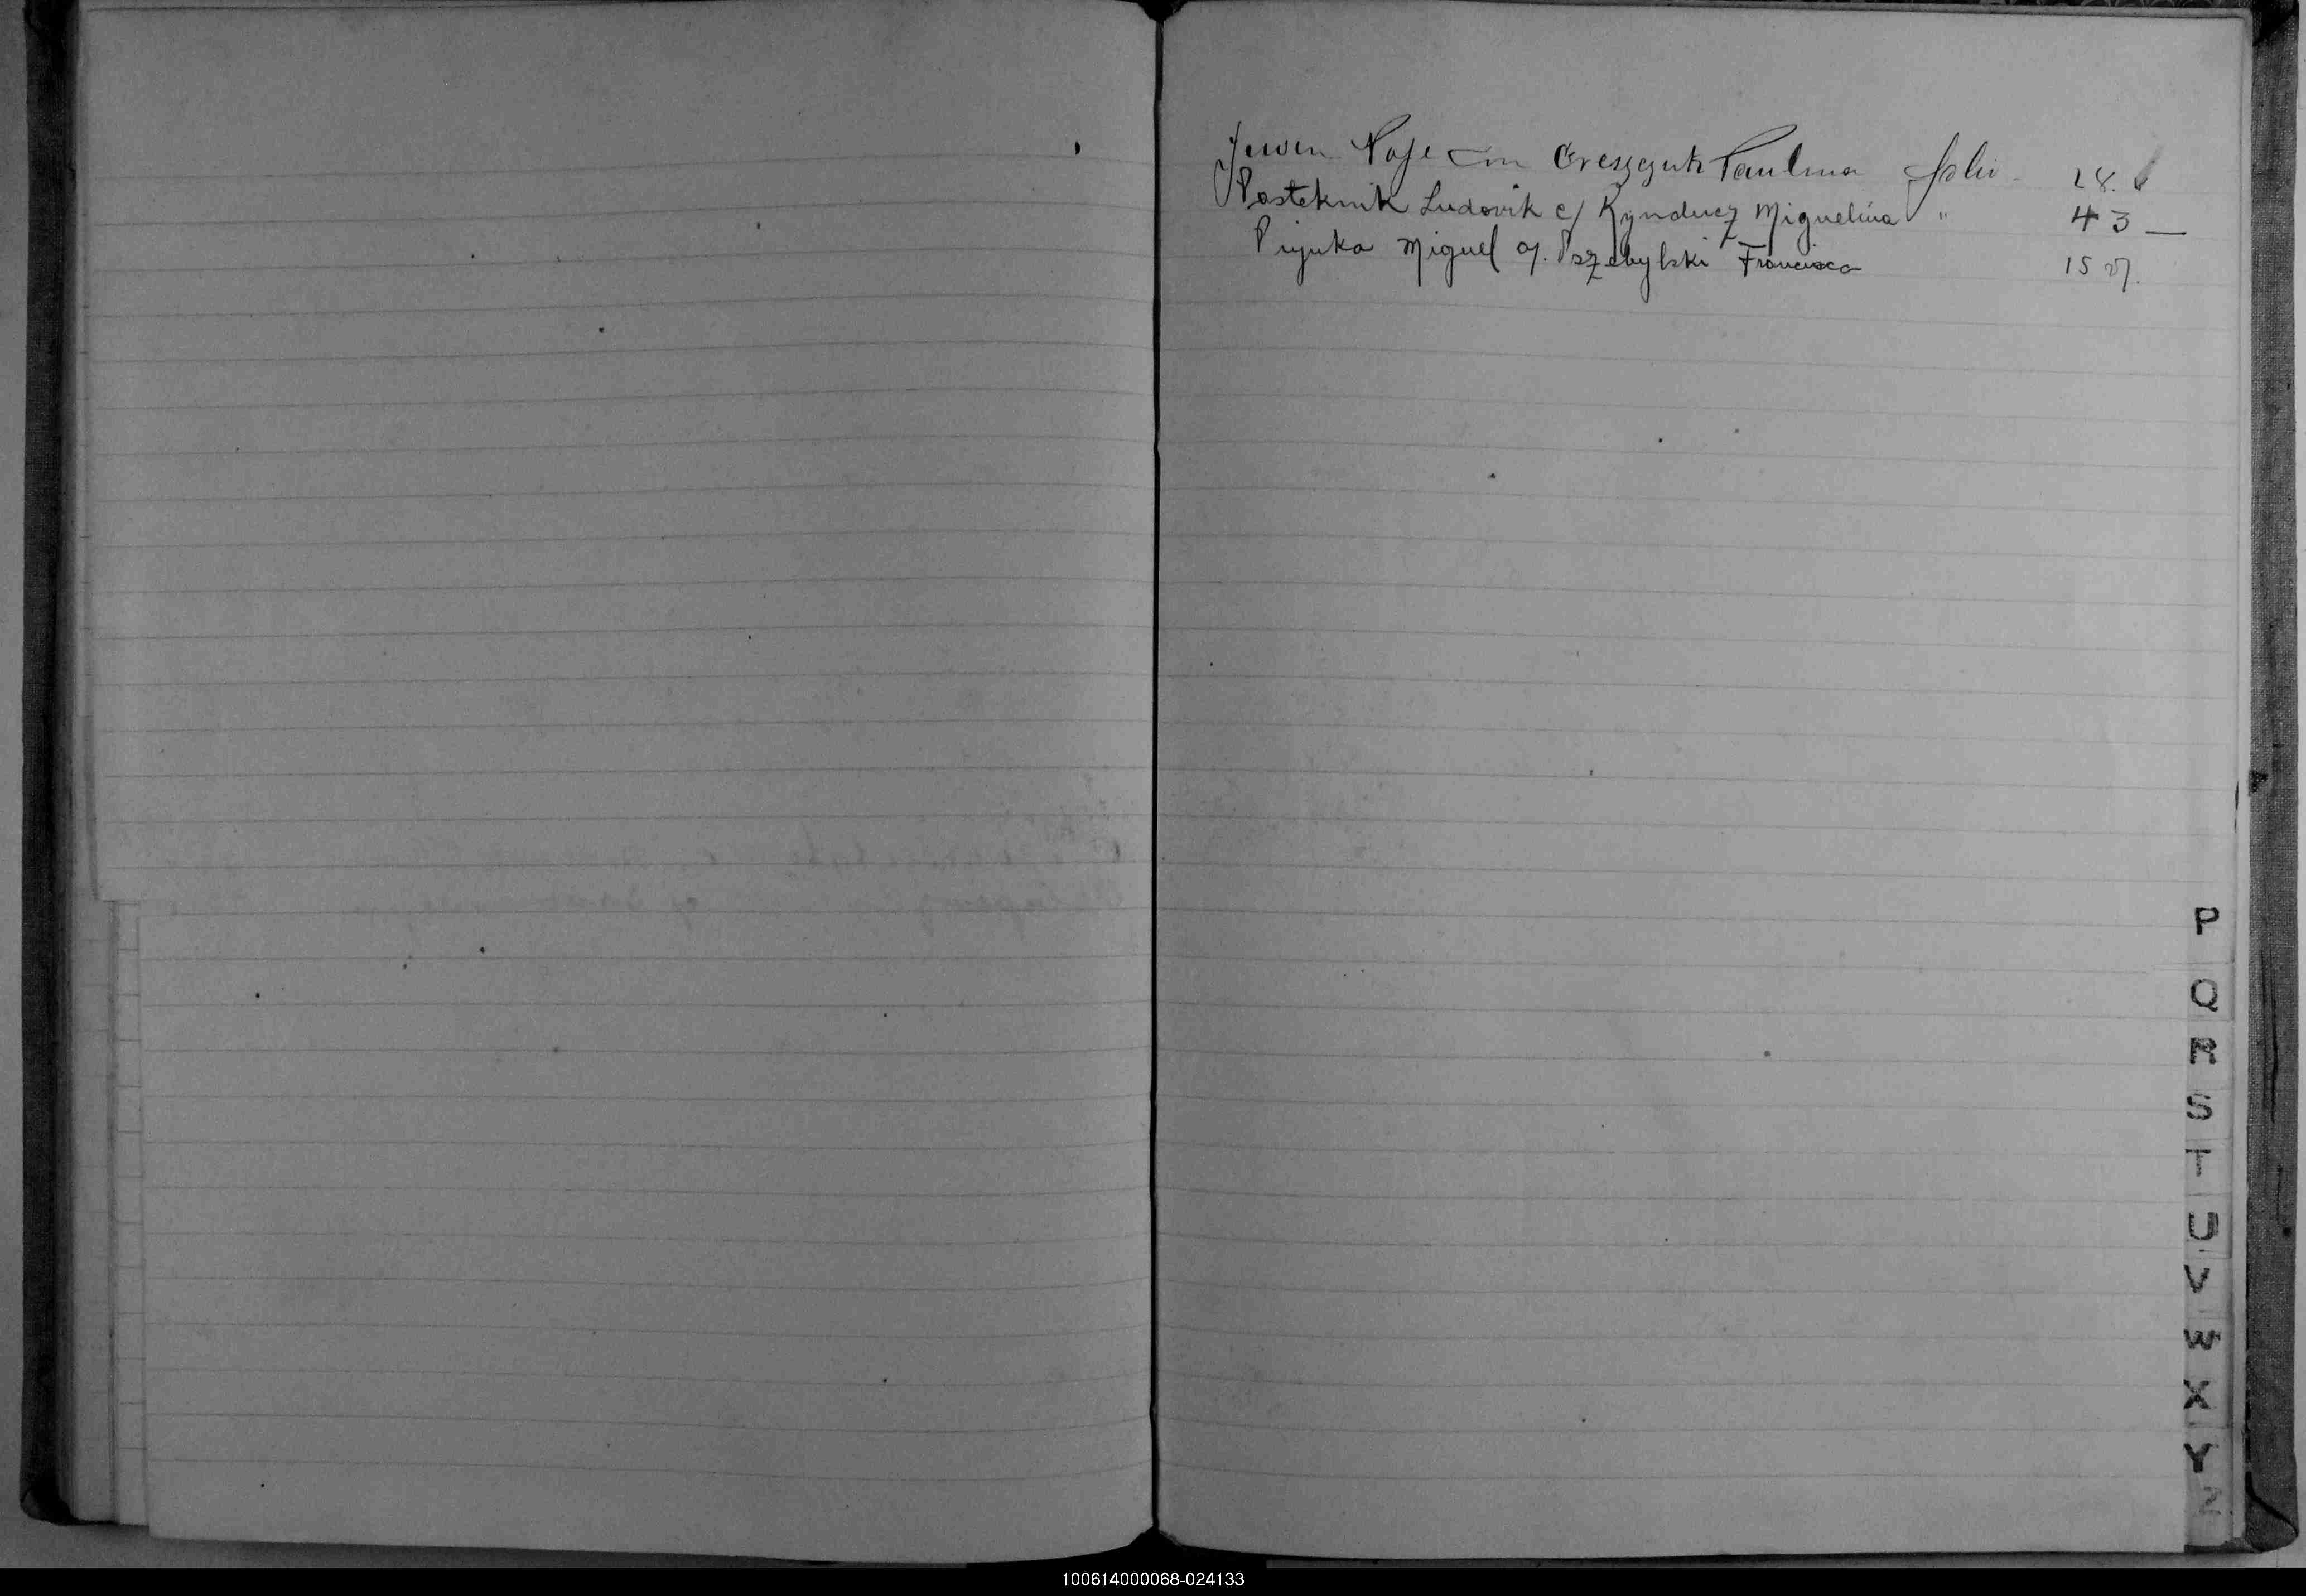 con Paulina folio 28.
Posteknik Ludovik c/ Kynducz Miguelina " 43 —
Piyuka Miguel c/. Pszebylski Francisca 157.
P
Q
R
S
T
U
V
W
X
Y
Z
100614000068-024133